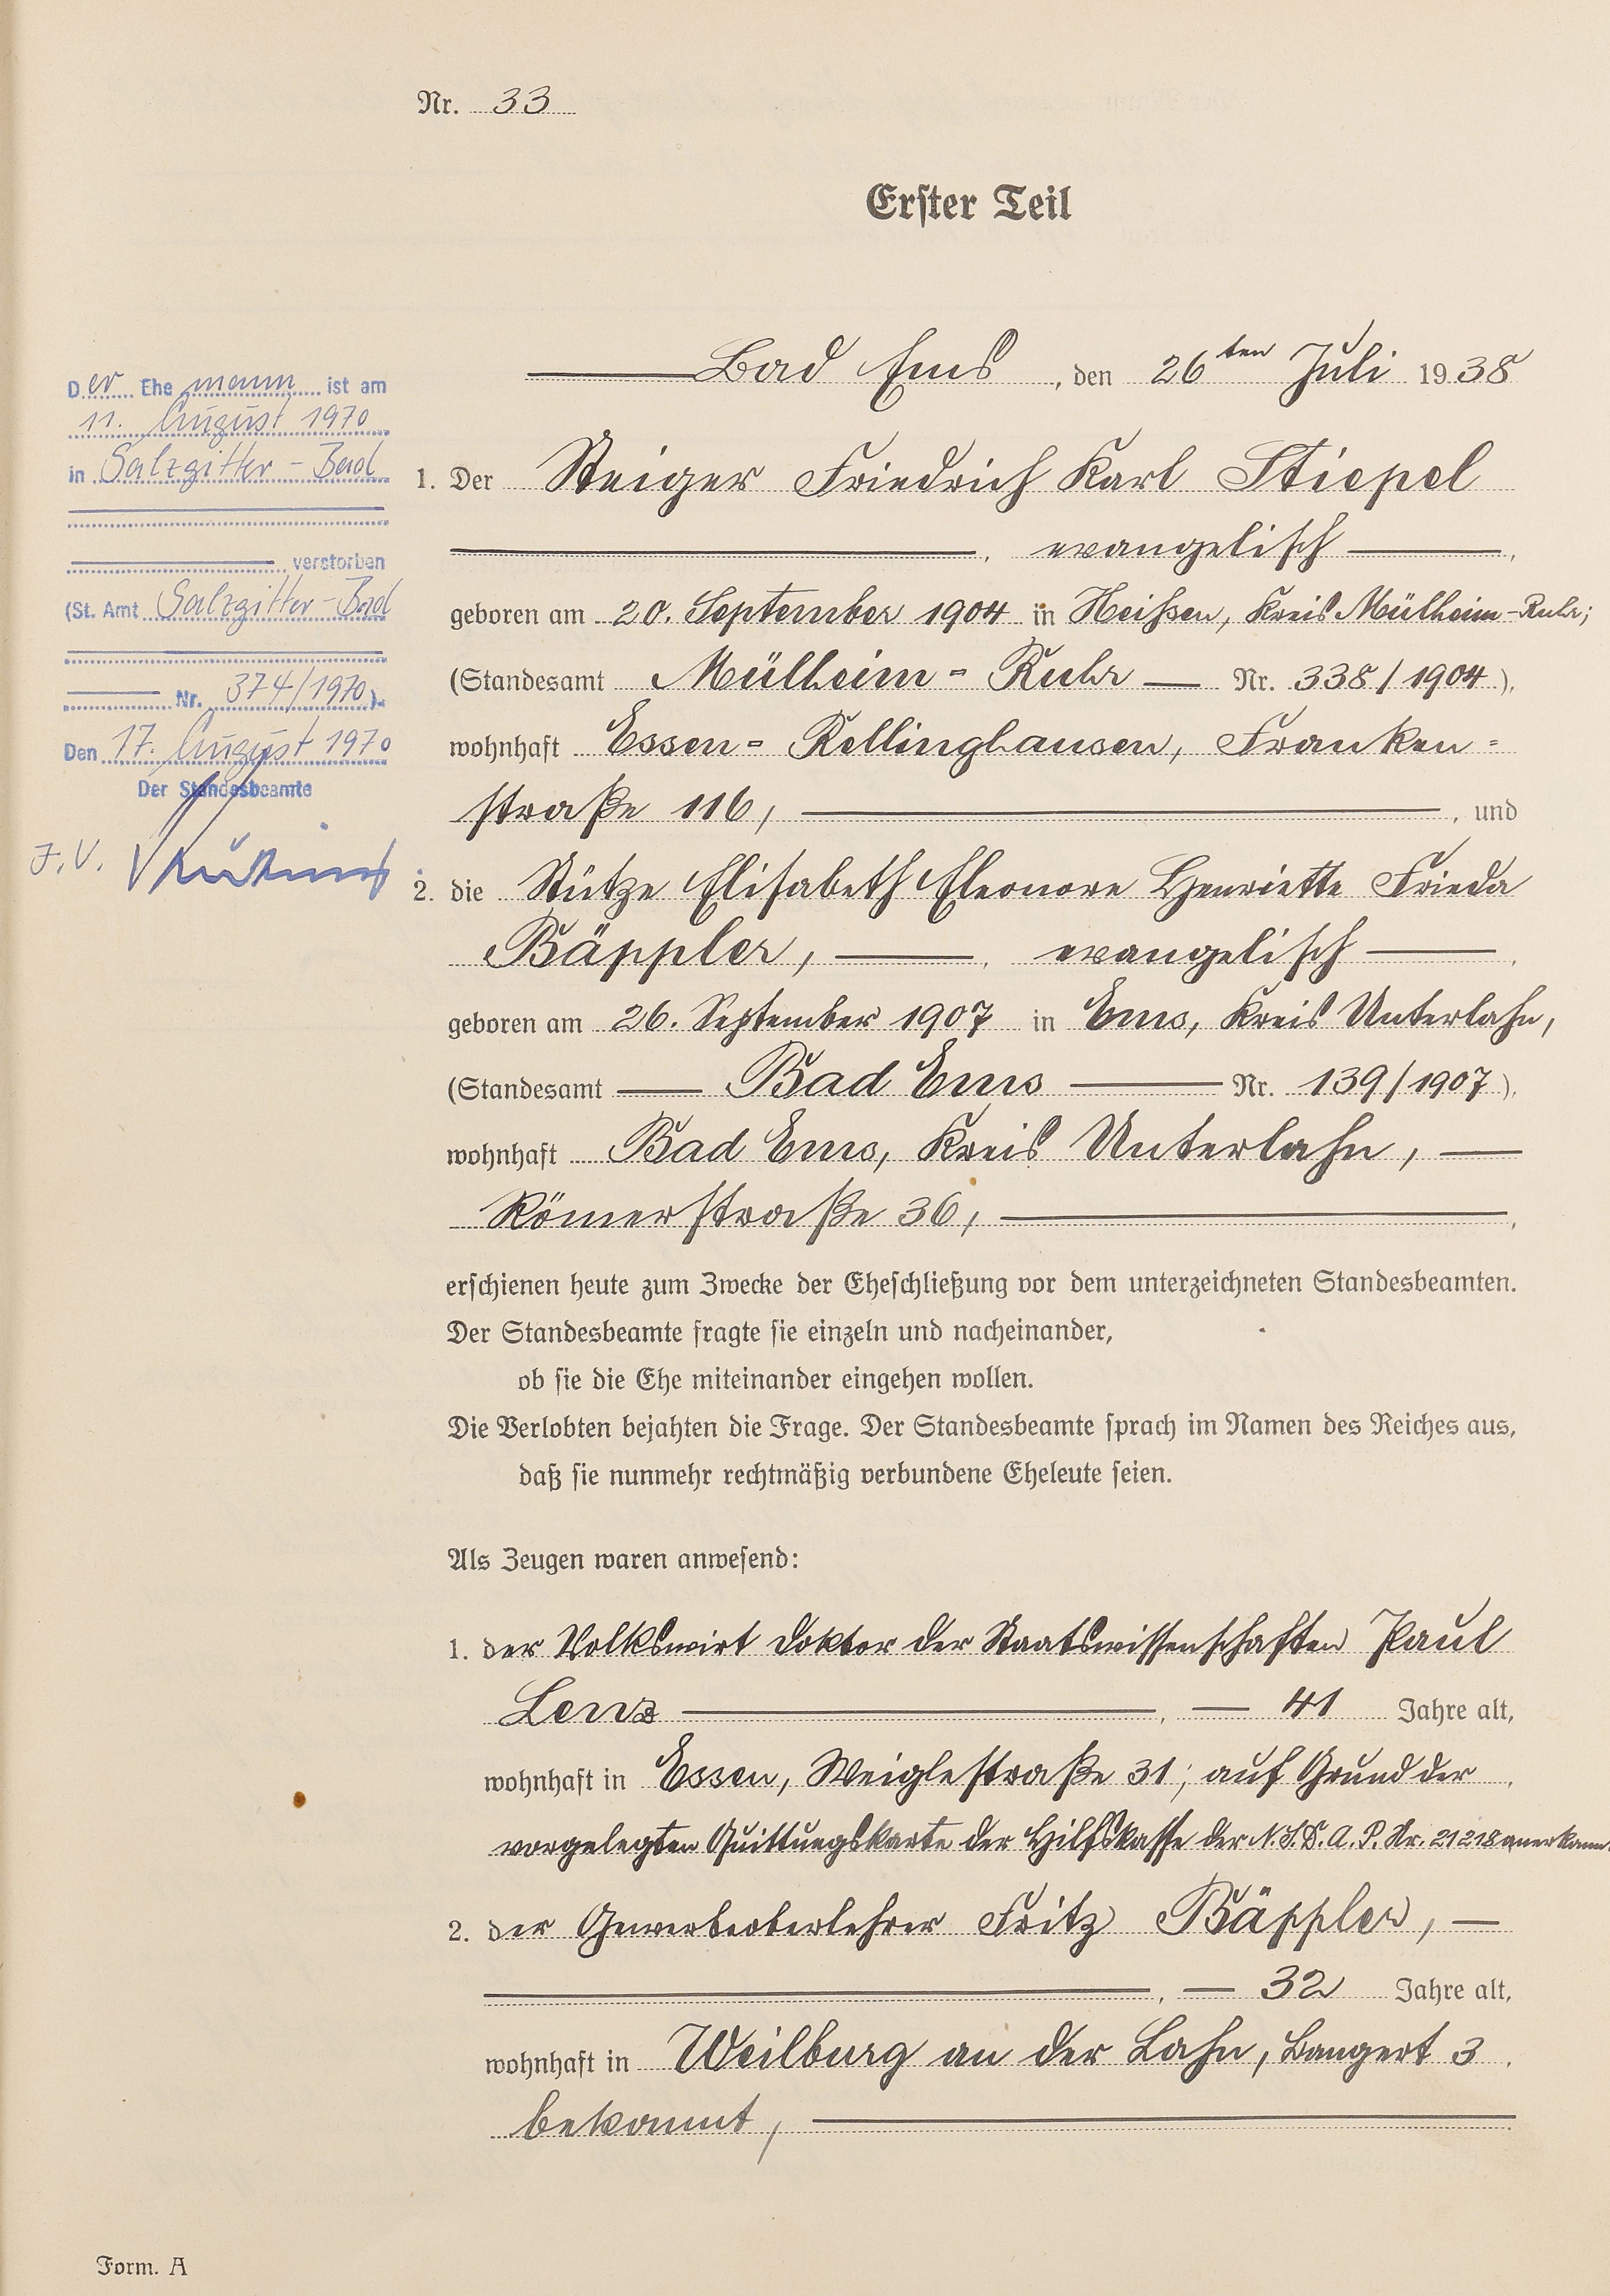 Nr. 33
Erster Teil
Bad Ems, den 26ten Juli 1938
1. Der Steiger Friedrich Karl Stiepel
, evangelisch,
geboren am 20. September 1904 in Heißen, Kreis Mülheim-Ruhr;
(Standesamt Mülheim-Ruhr Nr. 338/1904),
wohnhaft Essen-Rellinghausen, Franken-
straße 116, , und
2. die Stütze Elisabeth Eleonore Henriette Frieda
Bäppler, , evangelisch,
geboren am 26. September 1907 in Ems, Kreis Unterlahn,
(Standesamt Bad Ems Nr. 139/1907),
wohnhaft Bad Ems, Kreis Unterlahn,
Römerstraße 36, ,
erschienen heute zum Zwecke der Eheschließung vor dem unterzeichneten Standesbeamten.
Der Standesbeamte fragte sie einzeln und nacheinander,
ob sie die Ehe miteinander eingehen wollen.
Die Verlobten bejahten die Frage. Der Standesbeamte sprach im Namen des Reiches aus,
daß sie nunmehr rechtmäßig verbundene Eheleute seien.
Als Zeugen waren anwesend:
1. der Volkswirt Doktor der Staatswissenschaften Paul
Lenz, 41 Jahre alt,
wohnhaft in Essen, Weiglestraße 31; auf Grund der
vorgelegten Quittungskarte der Hilfskasse der N.S.D.A.P. Nr. 21218 anerkannt.
2. der Gewerbeoberlehrer Fritz Bäppler,
, 32 Jahre alt,
wohnhaft in Weilburg an der Lahn, Bangert 3.
bekannt,
Form. A
Der Ehemann ist am
11. August 1970
in Salzgitter-Bad
verstorben
(St. Amt Salzgitter-Bad
Nr. 374/1970).
Den 17. August 1970
Der Standesbeamte
J.V.